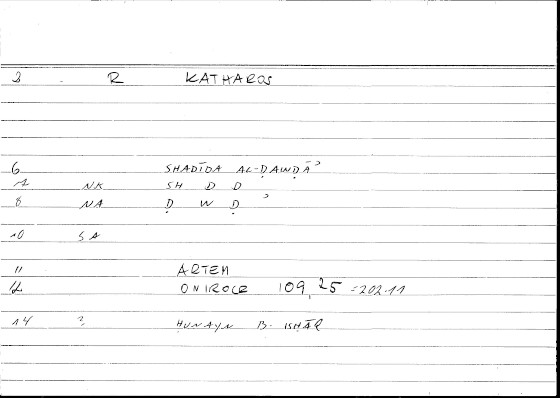 3 . R KATHAROS
6 SHADĪDA AL-ḌAWḌĀʾ
7 NK SH D D
8 NA Ḍ W Ḍ ʾ
10 SA
11 ARTEM
12 ONIROCR 109,25 =202.11
14 ? ḤUNAYN B. ISḤĀQ